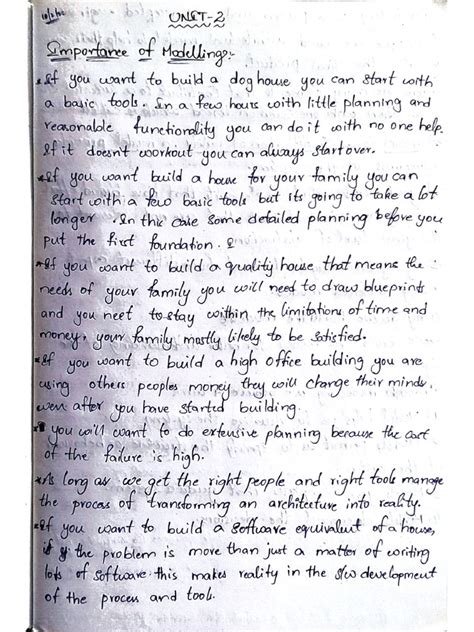 UNIT-2
Importance of Modelling:-
*If you want to build a dog house you can start with
a basic tools. In a few hours with little planning and
reasonable functionality you can do it with no one help.
If it doesn't workout you can always startover.
*If you want build a house for your family you can
start with a few basic tools but its going to take a lot
longer. In this case some detailed planning before you
put the first foundation.
*If you want to build a quality house that means the
needs of your family you will need to draw blueprints
and you neet to stay within the limitations of time and
money, your family mostly likely to be satisfied.
*If you want to build a high office building you are
using others peoples money they will change their minds
even after you have started building.
* you will want to do extensive planning because the cost
of the failure is high.
*As long as we get the right people and right tools manage
the process of transforming an architecture into reality.
*If you want to build a software equivalent of a house,
if the problem is more than just a matter of writing
lots of software this makes reality in the s/w development
of the process and tool.